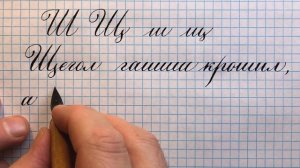 Ш Щ ш щ
Щегол гашиш крошил,
а